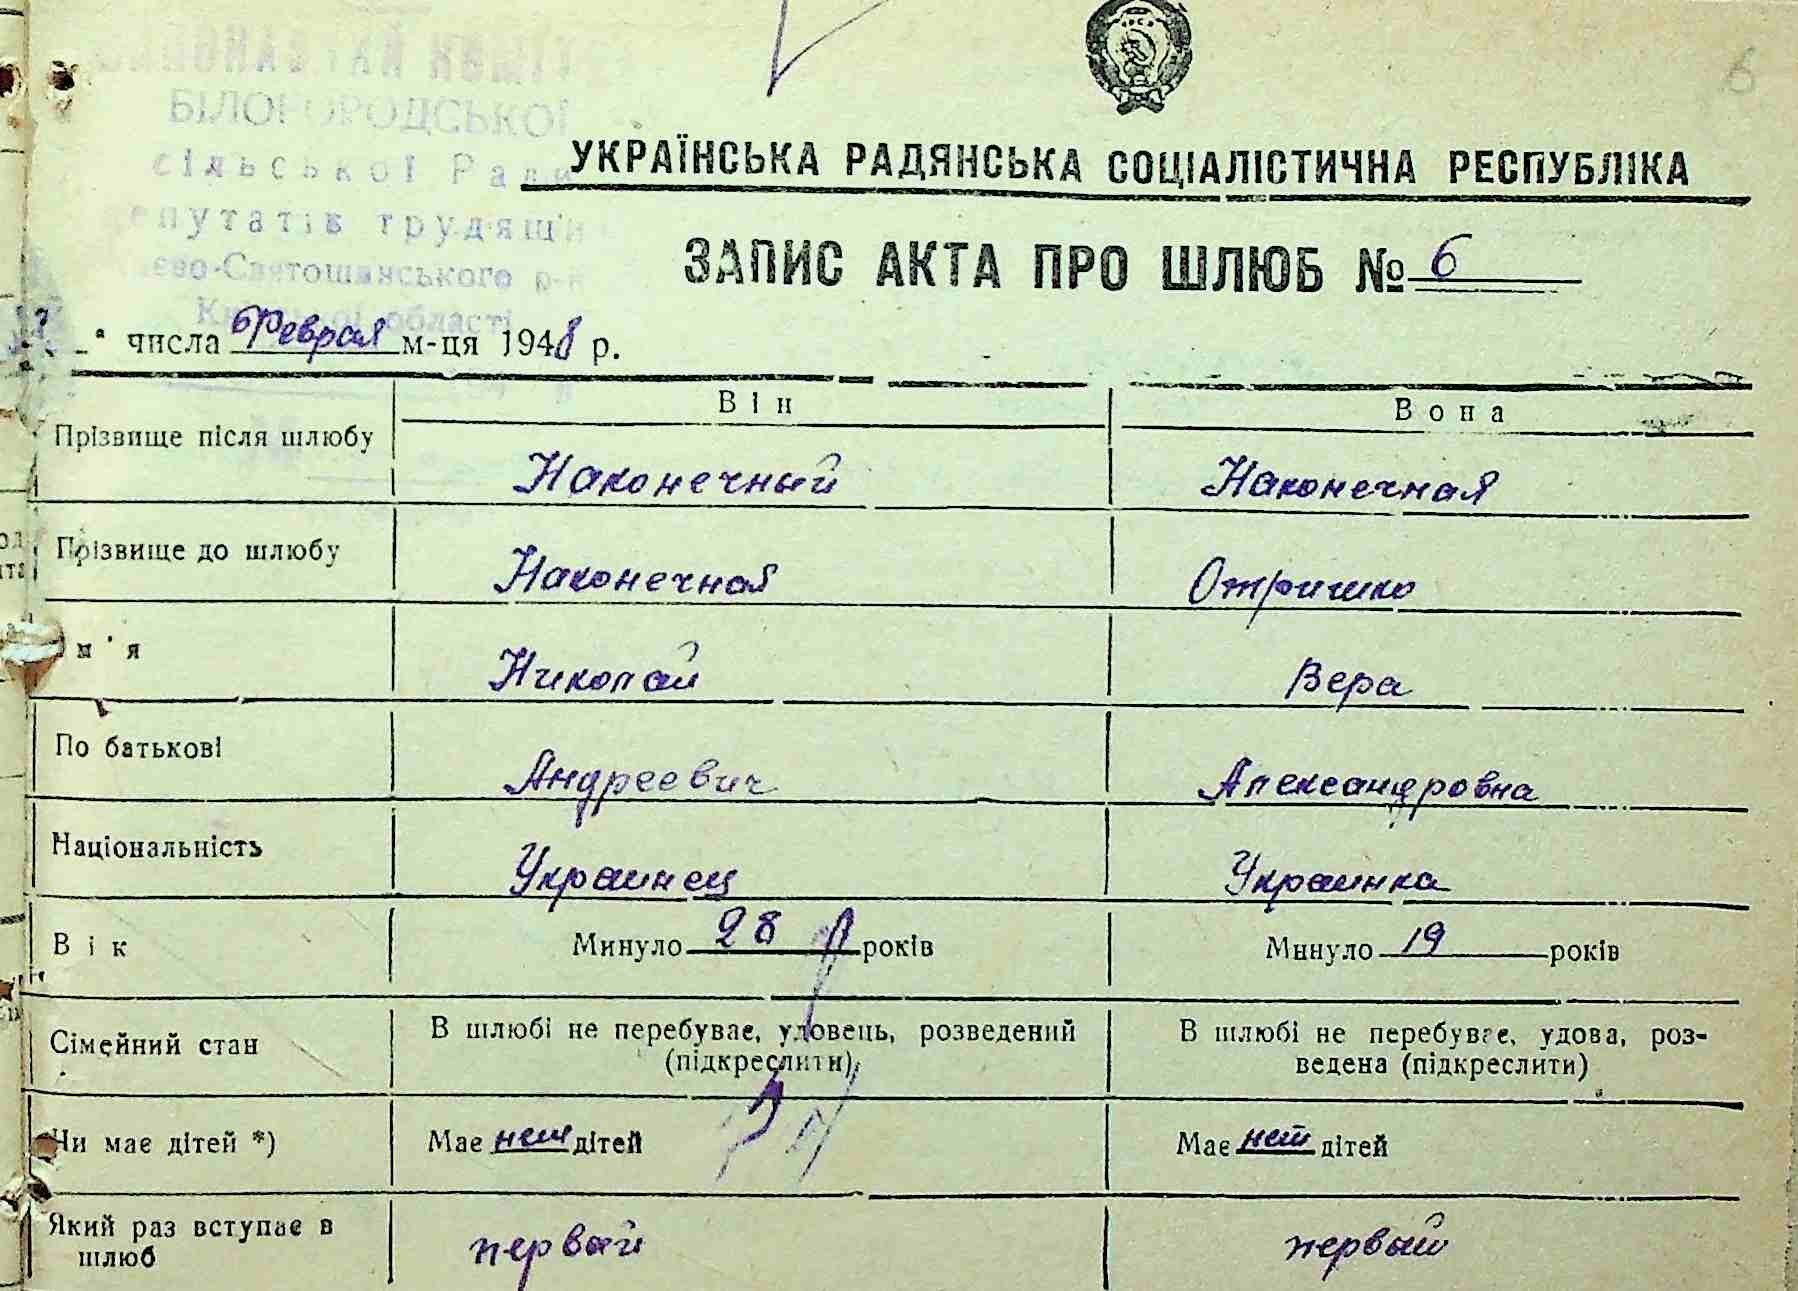 6
БІЛОГОРОДСЬКОЇ
сільської Ради
депутатів трудящи
Києво-Святошинського р-н
Київської області
УКРАЇНСЬКА РАДЯНСЬКА СОЦІАЛІСТИЧНА РЕСПУБЛІКА
ЗАПИС АКТА ПРО ШЛЮБ № 6
" числа Февраля м-ця 1948 р.
Він Вона
Прізвище після шлюбу Наконечный Наконечная
Прізвище до шлюбу Наконечная Отришко
м'я Николай Вера
По батькові Андреевич Александровна
Національність Украинец Украинка
Вік Минуло 28 років Минуло 19 років
Сімейний стан В шлюбі не перебуває, удовець, розведений (підкреслити) В шлюбі не перебуває, удова, роз-
ведена (підкреслити)
Чи має дітей *) Має нет дітей Має нет дітей
Який раз вступає в первый первый
шлюб